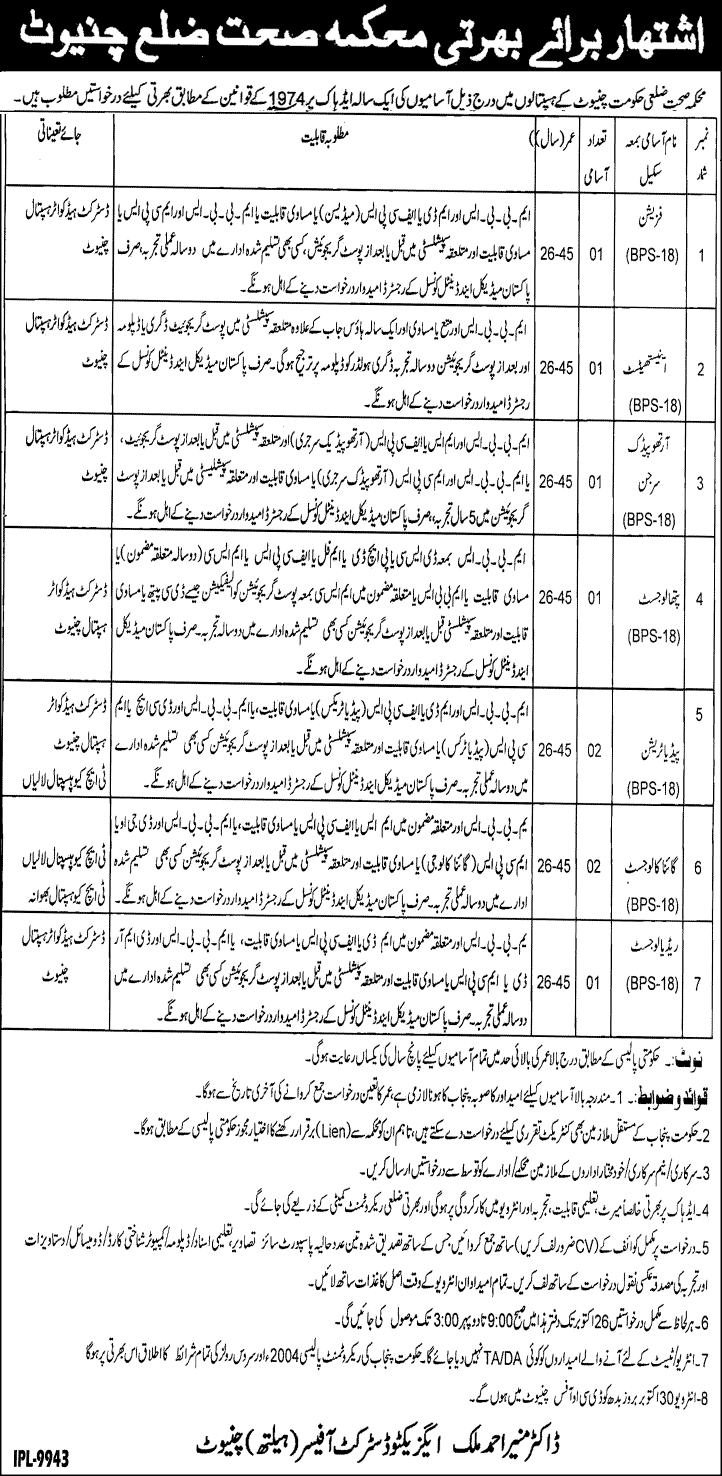 اشتہار برائے بھرتی محکمہ صحت ضلع چنیوٹ
محکمہ صحت ضلعی حکومت چنیوٹ کے ہسپتالوں میں درج ذیل آسامیوں کی ایک سالہ ایڈہاک پر 1974 کے قوانین کے مطابق بھرتی کیلئے درخواستیں مطلوب ہیں۔
نمبر شمار	نام آسامی بمعہ سکیل	تعداد آسامی	عمر (سال)	مطلوبہ قابلیت	جائے تعیناتی
1	فزیشن (BPS-18)	01	26-45	ایم۔بی۔بی۔ایس اور ایم ڈی یا ایف سی پی ایس (میڈیسن) یا مساوی قابلیت یا ایم۔بی۔بی۔ایس اور ایم سی پی ایس یا	ڈسٹرکٹ ہیڈ کواٹر ہسپتال
مساوی قابلیت اور متعلقہ سپیشلسٹی میں قبل یا بعد از پوسٹ گریجوئیشن، کسی بھی تسلیم شدہ ادارے میں دو سالہ عملی تجربہ، صرف	چنیوٹ
پاکستان میڈیکل اینڈ ڈینٹل کونسل کے رجسٹرڈ امیدوار درخواست دینے کے اہل ہونگے۔
2	اینستھیٹسٹ (BPS-18)	01	26-45	ایم۔بی۔بی۔ایس اور متبع یا مساوی اور ایک سالہ ہاؤس جاب کے علاوہ متعلقہ سپیشلسٹی میں پوسٹ گریجوئیٹ ڈگری یا ڈپلومہ	ڈسٹرکٹ ہیڈ کواٹر ہسپتال
اور بعد از پوسٹ گریجوئیشن دو سالہ تجربہ ڈگری ہولڈر کو ڈپلومہ پر ترجیح ہوگی۔ صرف پاکستان میڈیکل اینڈ ڈینٹل کونسل کے	چنیوٹ
رجسٹرڈ امیدوار درخواست دینے کے اہل ہونگے۔
3	آرتھوپیڈک سرجن (BPS-18)	01	26-45	ایم۔بی۔بی۔ایس اور ایم ایس یا ایف سی پی ایس (آرتھوپیڈیک سرجری) اور متعلقہ سپیشلسٹی میں قبل یا بعد از پوسٹ گریجوئیٹ،	ڈسٹرکٹ ہیڈ کواٹر ہسپتال
یا ایم۔بی۔بی۔ایس اور ایم سی پی ایس (آرتھوپیڈک سرجری) یا مساوی قابلیت اور متعلقہ سپیشلیسٹی میں قبل یا بعد از پوسٹ	چنیوٹ
گریجوئیشن میں 5 سال تجربہ، صرف پاکستان میڈیکل اینڈ ڈینٹل کونسل کے رجسٹرڈ امیدوار درخواست دینے کے اہل ہونگے۔
4	پتھالوجسٹ (BPS-18)	01	26-45	ایم۔بی۔بی۔ایس بمعہ ڈی ایس سی یا پی ایچ ڈی یا ایم فل یا ایف سی پی ایس یا ایم ایس سی (دو سالہ متعلقہ مضمون) یا
مساوی قابلیت یا ایم بی بی ایس یا متعلقہ مضمون میں ایم ایس سی بمعہ پوسٹ گریجوئیشن کوالیفیکیشن جیسے ڈی سی پیتھ یا مساوی	ڈسٹرکٹ ہیڈ کواٹر
قابلیت اور متعلقہ سپیشلسٹی قبل یا بعد از پوسٹ گریجوئیشن کسی بھی تسلیم شدہ ادارے میں دو سالہ تجربہ۔ صرف پاکستان میڈیکل	ہسپتال چنیوٹ
اینڈ ڈینٹل کونسل کے رجسٹرڈ امیدوار درخواست دینے کے اہل ہونگے۔
5	پیڈیاٹریشن (BPS-18)	02	26-45	ایم۔بی۔بی۔ایس اور ایم ڈی یا ایف سی پی ایس (پیڈیاٹرکس) یا مساوی قابلیت، یا ایم۔بی۔بی۔ایس اور ڈی سی ایچ یا ایم	ڈسٹرکٹ ہیڈ کواٹر
سی پی ایس (پیڈیاٹرکس) یا مساوی قابلیت اور متعلقہ سپیشلسٹی میں قبل یا بعد از پوسٹ گریجوئیشن کسی بھی تسلیم شدہ ادارے	ہسپتال چنیوٹ
میں دو سالہ عملی تجربہ۔ صرف پاکستان میڈیکل اینڈ ڈینٹل کونسل کے رجسٹرڈ امیدوار درخواست دینے کے اہل ہونگے۔	ٹی ایچ کیو ہسپتال لالیاں
6	گائناکالوجسٹ (BPS-18)	02	26-45	یم۔بی۔بی۔ایس اور متعلقہ مضمون میں ایم ایس یا ایف سی پی ایس یا مساوی قابلیت، یا ایم۔بی۔بی۔ایس اور ڈی جی او یا
ایم سی پی ایس (گائناکالوجی) یا مساوی قابلیت اور متعلقہ سپیشلسٹی میں قبل یا بعد از پوسٹ گریجوئیشن کسی بھی تسلیم شدہ	ٹی ایچ کیو ہسپتال لالیاں
ادارے میں دو سالہ عملی تجربہ۔ صرف پاکستان میڈیکل اینڈ ڈینٹل کونسل کے رجسٹرڈ امیدوار درخواست دینے کے اہل ہونگے۔	ٹی ایچ کیو ہسپتال بھوانہ
7	ریڈیالوجسٹ (BPS-18)	01	26-45	یم۔بی۔بی۔ایس اور متعلقہ مضمون میں ایم ڈی یا ایف سی پی ایس یا مساوی قابلیت، یا ایم۔بی۔بی۔ایس اور ڈی ایم آر	ڈسٹرکٹ ہیڈ کواٹر ہسپتال
ڈی یا ایم سی پی ایس یا مساوی قابلیت اور متعلقہ سپیشلسٹی میں قبل یا بعد از پوسٹ گریجوئیشن کسی بھی تسلیم شدہ ادارے میں	چنیوٹ
دو سالہ عملی تجربہ۔ صرف پاکستان میڈیکل اینڈ ڈینٹل کونسل کے رجسٹرڈ امیدوار درخواست دینے کے اہل ہونگے۔
نوٹ:۔ حکومتی پالیسی کے مطابق درج بالا عمر کی بالائی حد میں تمام آسامیوں کیلئے پانچ سال کی یکساں رعایت ہوگی۔
قوائد و ضوابط:۔ 1۔ مندرجہ بالا آسامیوں کیلئے امیدوار کا صوبہ پنجاب کا ہونا لازمی ہے، عمر کا تعین درخواست جمع کروانے کی آخری تاریخ سے ہوگا۔
2۔ حکومت پنجاب کے مستقل ملازمین بھی کنٹریکٹ تقرری کیلئے درخواست دے سکتے ہیں، تاہم ان کو محکمہ سے (Lien) برقرار رکھنے کا اختیار مجوز حکومتی پالیسی کے مطابق ہوگا۔
3۔ سرکاری/نیم سرکاری/خودمختار اداروں کے ملازمین محکمے/ادارے کا توسط سے درخواستیں ارسال کریں۔
4۔ ایڈہاک پر بھرتی خالصتا میرٹ، تعلیمی قابلیت، تجربہ اور انٹرویو میں کارکردگی پر ہوگی اور بھرتی ضلعی ریکروٹمنٹ کمیٹی کے ذریعے کی جائے گی۔
5۔ درخواست پر مکمل کوائف کے (CV ضرور لف کریں) ساتھ جمع کروائیں جس کے ساتھ تصدیق شدہ تین عدد حالیہ پاسپورٹ سائز تصاویر، تعلیمی اسناد/ڈپلومہ/کمپیوٹر شناختی کارڈ/ڈومیسائل/دستاویزات
اور تجربہ کی مصدقہ عکسی نقول درخواست کے ساتھ لف کریں۔ تمام امیداوان انٹرویو کے وقت اصل کاغذات ساتھ لائیں۔
6۔ ہر لحاظ سے مکمل درخواستیں 26 اکتوبر تک دفتر ہذا میں صبح 9:00 تا دوپہر 3:00 تک موصول کی جائیں گی۔
7۔ انٹرویو/ٹیسٹ کے لئے آنے والے امیداروں کو کوئی TA/DA نہیں دیا جائے گا۔ حکومت پنجاب کی ریکروٹمنٹ پالیسی 2004ء اور سروس رولز کی تمام شرائط کا اطلاق اس بھرتی پر ہوگا
8۔ انٹرویو 30 اکتوبر بروز بدھ کو ڈی سی او آفس چنیوٹ میں ہوں گے۔
ڈاکٹر منیر احمد ملک ایگزیکٹو ڈسٹرکٹ آفیسر (ہیلتھ) چنیوٹ
IPL-9943